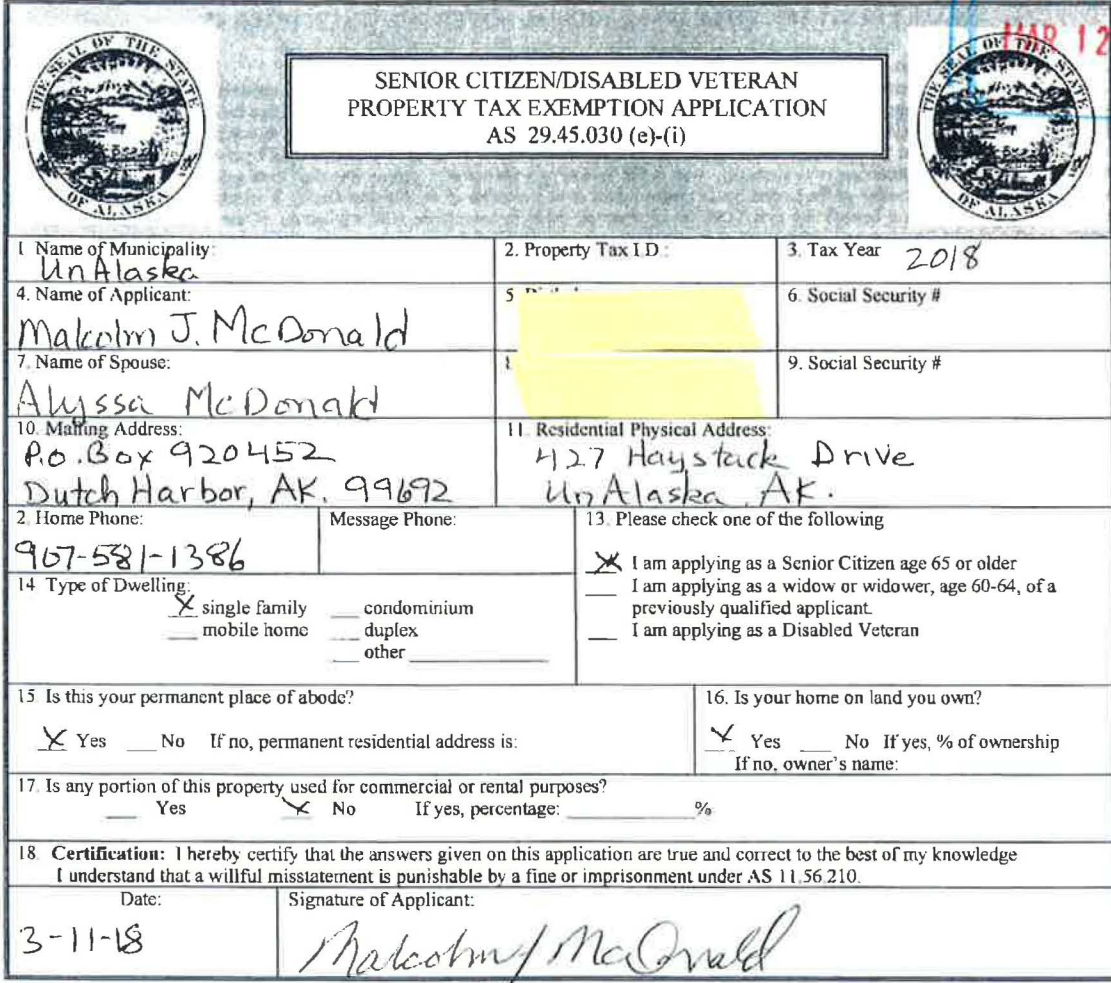 THE SEAL OF THE STATE
OF ALASKA
SENIOR CITIZEN/DISABLED VETERAN
PROPERTY TAX EXEMPTION APPLICATION
AS 29.45.030 (e)-(i)
THE SEAL OF THE STATE
OF ALASKA
MAR 12
1 Name of Municipality:
UnAlaska
2. Property Tax I.D.:
3. Tax Year 2018
4. Name of Applicant:
Malcolm J. McDonald
5
6. Social Security #
7. Name of Spouse:
Alyssa McDonald
9. Social Security #
10. Mailing Address:
P.O. Box 920452
Dutch Harbor, AK. 99692
11. Residential Physical Address:
427 Haystack Drive
UnAlaska, AK.
2. Home Phone:
907-581-1386
Message Phone:
13. Please check one of the following
X I am applying as a Senior Citizen age 65 or older
___ I am applying as a widow or widower, age 60-64, of a
previously qualified applicant.
___ I am applying as a Disabled Veteran
14 Type of Dwelling:
X single family ___ condominium
___ mobile home ___ duplex
___ other ___
15. Is this your permanent place of abode?
X Yes ___ No If no, permanent residential address is:
16. Is your home on land you own?
X Yes ___ No If yes, % of ownership
If no, owner's name:
17. Is any portion of this property used for commercial or rental purposes?
___ Yes X No If yes, percentage: ___%
18. Certification: I hereby certify that the answers given on this application are true and correct to the best of my knowledge
I understand that a willful misstatement is punishable by a fine or imprisonment under AS 11.56.210.
Date:
3-11-18
Signature of Applicant:
Malcolm J McDonald